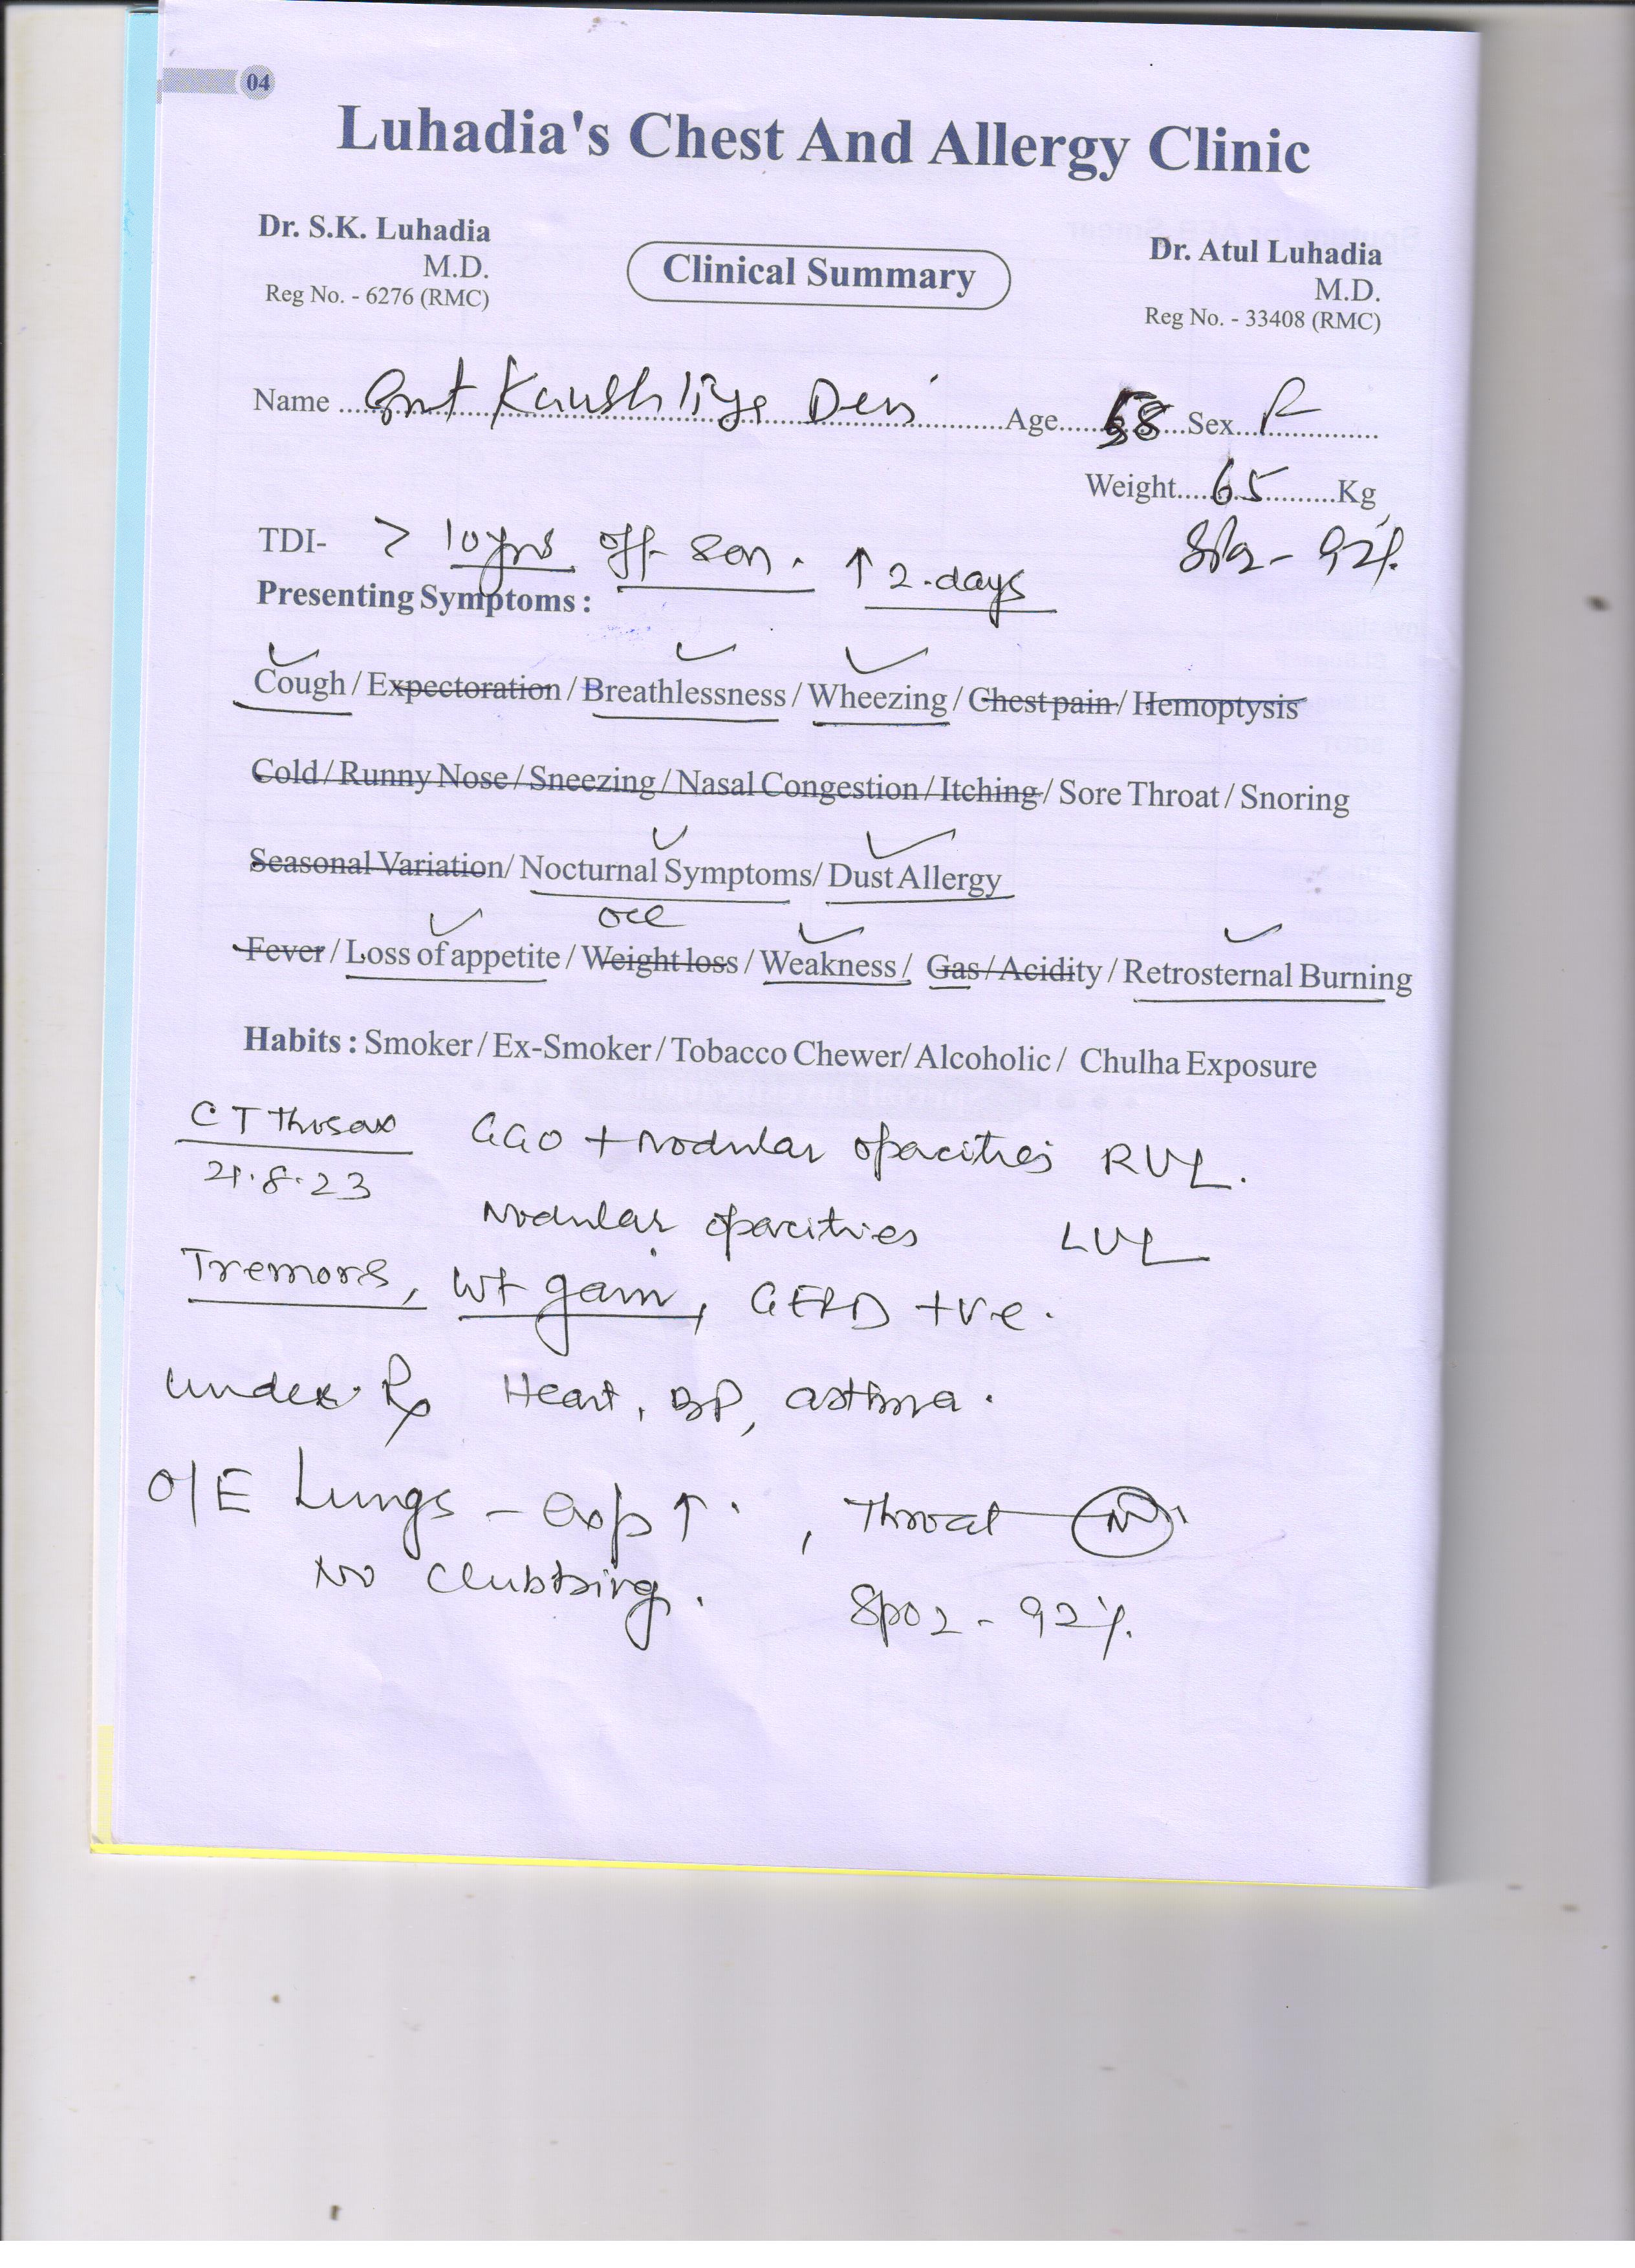 04
Luhadia's Chest And Allergy Clinic
Dr. S.K. Luhadia
M.D.
Reg No. - 6276 (RMC)
Clinical Summary
Dr. Atul Luhadia
M.D.
Reg No. - 33408 (RMC)
Name ... Smt Kaushliya Devi ... Age ... 58 ... Sex ... F
Weight.... 65 ....Kg
TDI- > 10 yrs off & on. ↑ 2. days SpO2 - 92%.
Presenting Symptoms :
Cough / Expectoration / Breathlessness / Wheezing / Chest pain / Hemoptysis
Cold / Runny Nose / Sneezing / Nasal Congestion / Itching / Sore Throat / Snoring
Seasonal Variation/ Nocturnal Symptoms/ Dust Allergy
occ
Fever / Loss of appetite / Weight loss / Weakness / Gas / Acidity / Retrosternal Burning
Habits : Smoker / Ex-Smoker / Tobacco Chewer/ Alcoholic / Chulha Exposure
CT Thorax GGO + Nodular opacities RUL.
21.8.23
Nodular opacities LUL
Tremors, wt gain, GERD +ve.
under Rx Heart, BP, asthma.
O/E Lungs - exp ↑ , Throat (N)
No Clubbing. SpO2 - 92%.